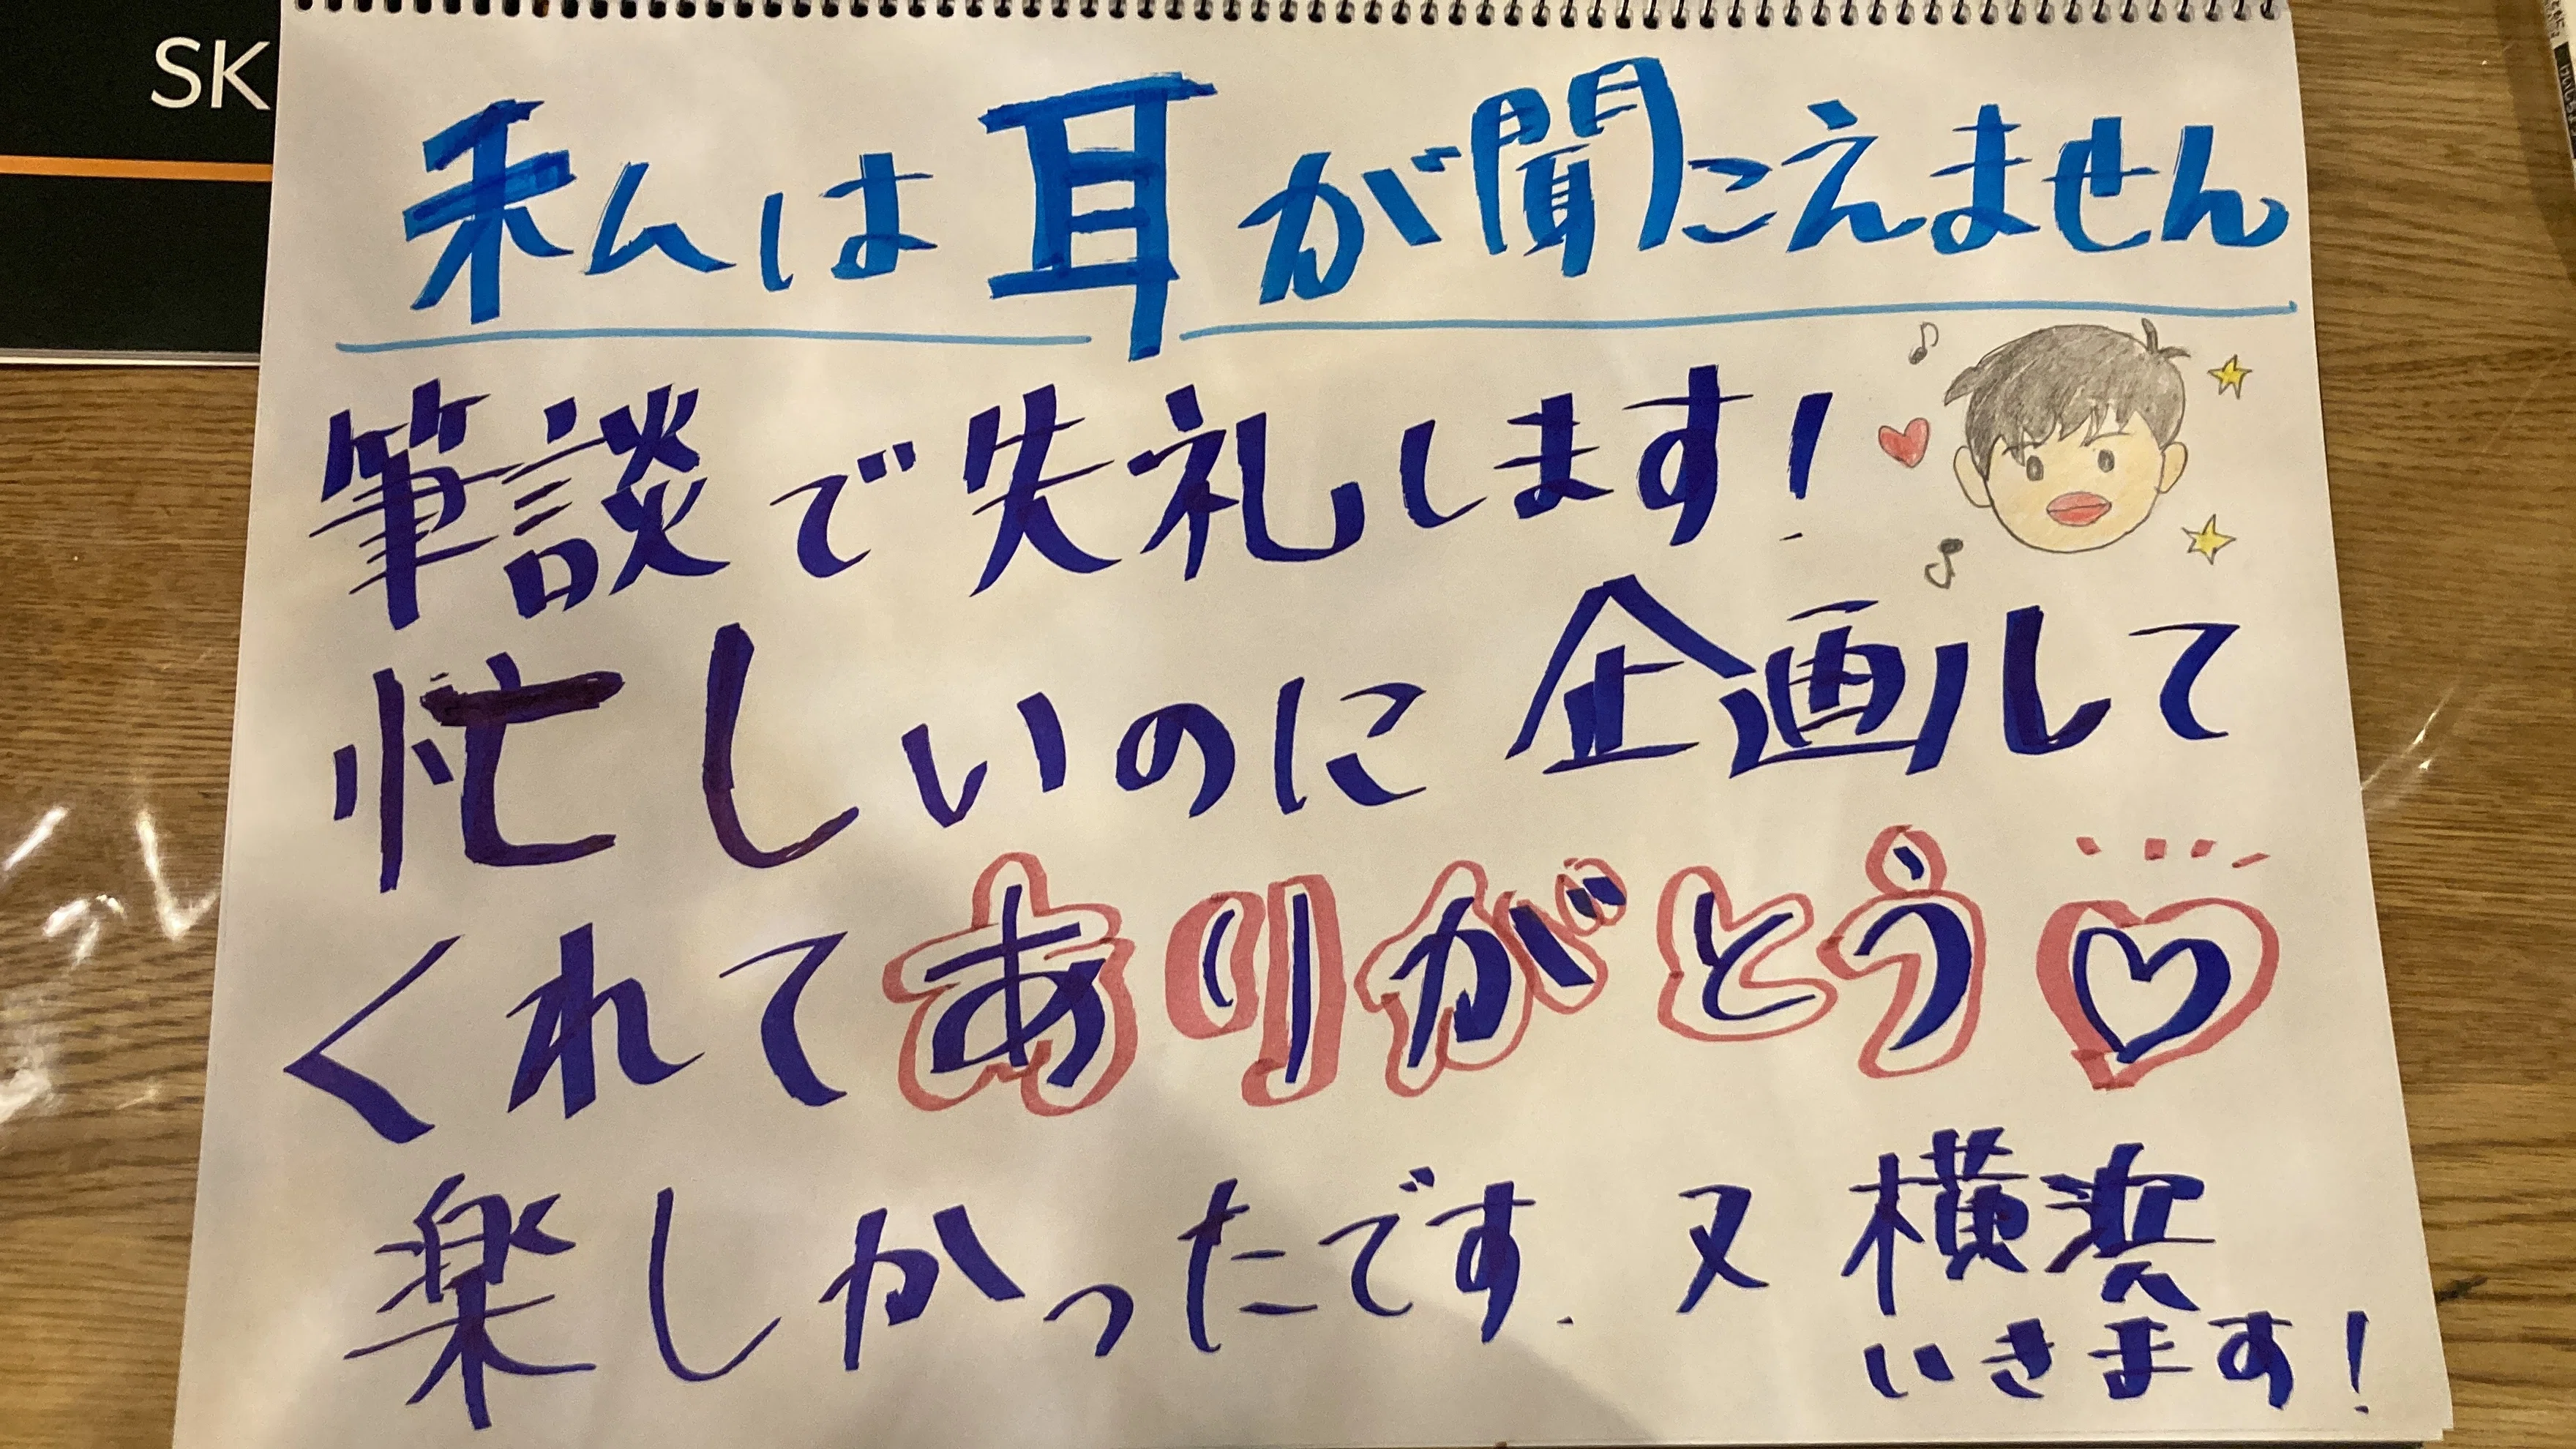 SK
私は耳が聞こえません
筆談で失礼します!
忙しいのに企画して
くれてありがとう♡
楽しかったです. 又横浜
いきます!